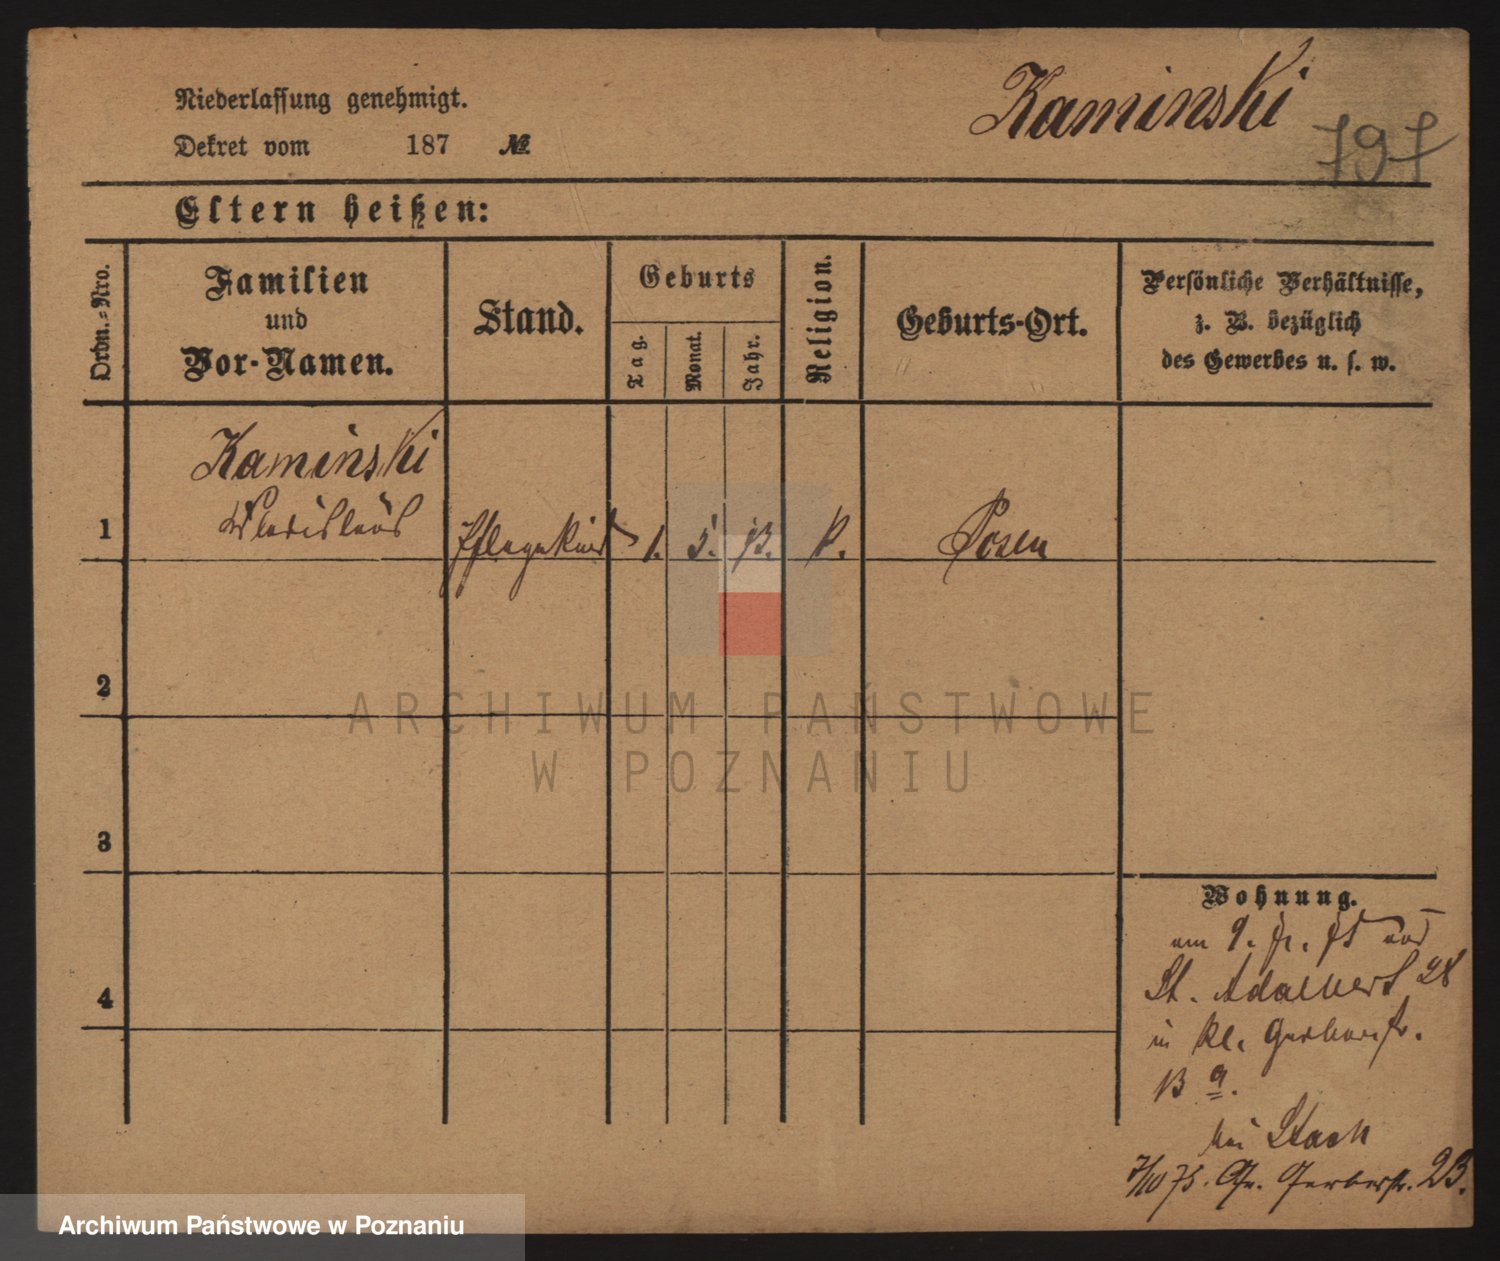 Kaminski
797
Niederlassung genehmigt.
Dekret vom 187 №
Eltern heißen:
Ordn.-Nro.
Familien
und
Vor-Namen.
Stand.
Geburts
Tag.
Monat.
Jahr.
Religion.
Geburts-Ort.
Persönliche Verhältnisse,
z. B. bezüglich
des Gewerbes u. s. w.
Kaminski
1 Wladislaus Pflegekind 1. 5. 73. k. Posen
2
3
4
Wohnung.
am 9. 75 von
St. Adalbert 28
in kl. Gerberstr.
13 a.
bei Stach
7/10 75. Gr. Gerberstr. 23.
ARCHIWUM PAŃSTWOWE
W POZNANIU
Archiwum Państwowe w Poznaniu